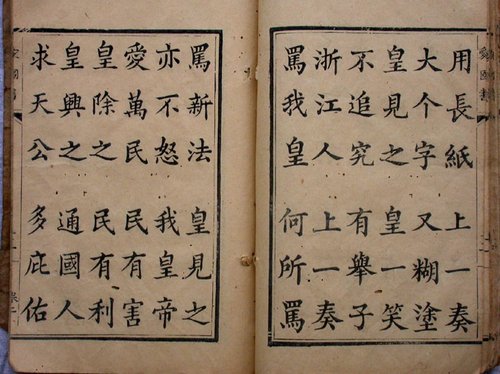 用長紙 上一奏
大个字 又糊塗
皇見之 皇一笑
不追究 有舉子
浙江人 上一奏
罵我皇 何所罵
罵新法 皇見之
亦不怒 我皇帝
愛萬民 民有害
皇除之 民有利
皇興之 通國人
求天公 多庇佑